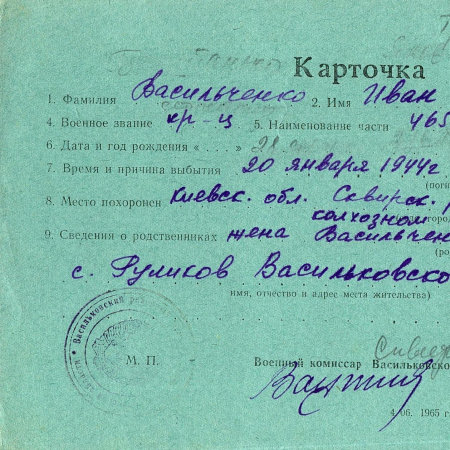 Карточка
1. Фамилия Васильченко 2. Имя Иван
4. Военное звание кр-ц 5. Наименование части 465
6. Дата и год рождения « . . . . »
7. Время и причина выбытия 20 января 1944г
8. Место похоронен Киевск. обл. Сквирск.
колхозной
9. Сведения о родственниках жена Васильчен
с. Руликов Васильковско
имя, отчество и адрес места жительства)
Васильковский
М. П.
Военный комиссар Васильковско
4 06. 1965 г